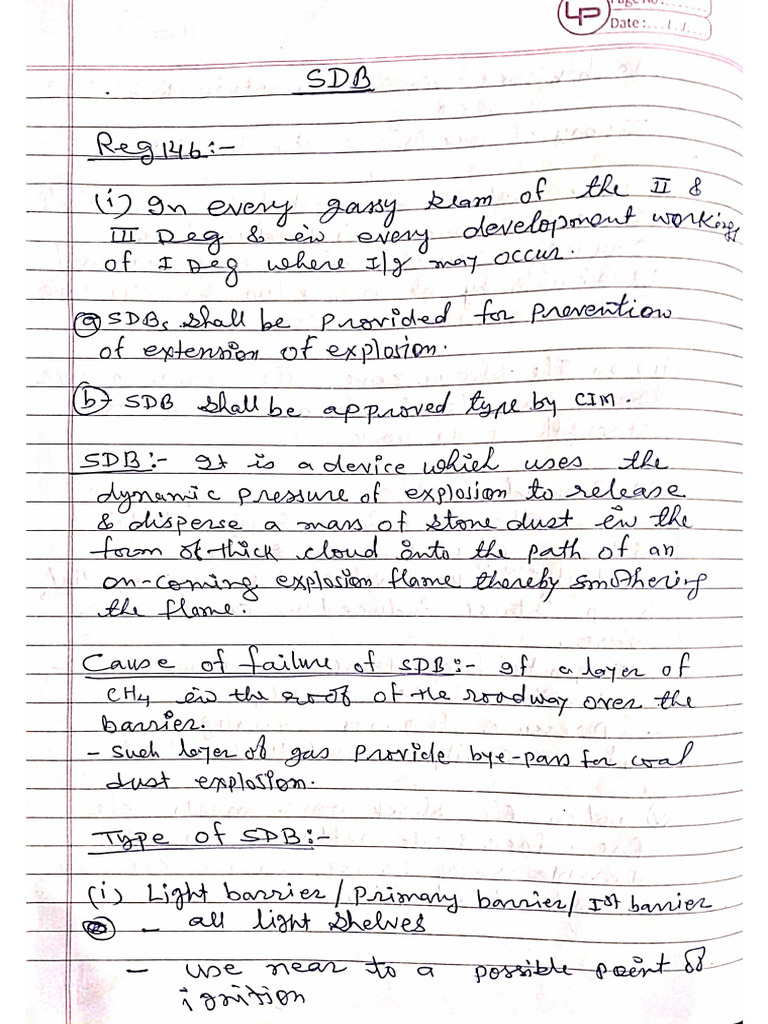 LP
Page No:........
Date:..../..../....
SDB
Reg 146:-
(i) In every gassy seam of the II &
III Deg & in every development workings
of I Deg where I/g may occur.
(a) SDBs shall be provided for prevention
of extension of explosion.
(b) SDB shall be approved type by CIM.
SDB:- It is a device which uses the
dynamic pressure of explosion to release
& disperse a mass of stone dust in the
form of thick cloud into the path of an
on-coming explosion flame thereby smothering
the flame.
Cause of failure of SDB:- If a layer of
CH4 in the roof of the roadway over the
barrier.
- Such layer of gas provide bye-pass for coal
dust explosion.
Type of SDB:-
(i) Light barrier/Primary barrier/Ist barrier
- all light shelves
- use near to a possible point of
ignition